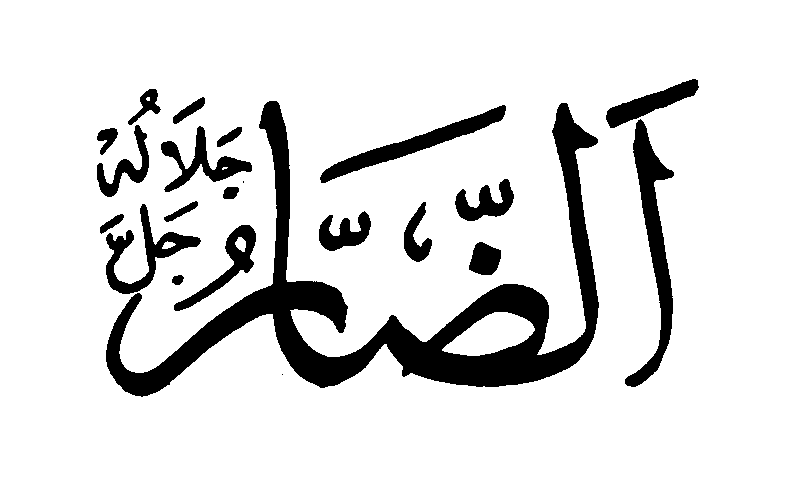 اَلضَّارُّ
جَلَّ جَلَالُهُ